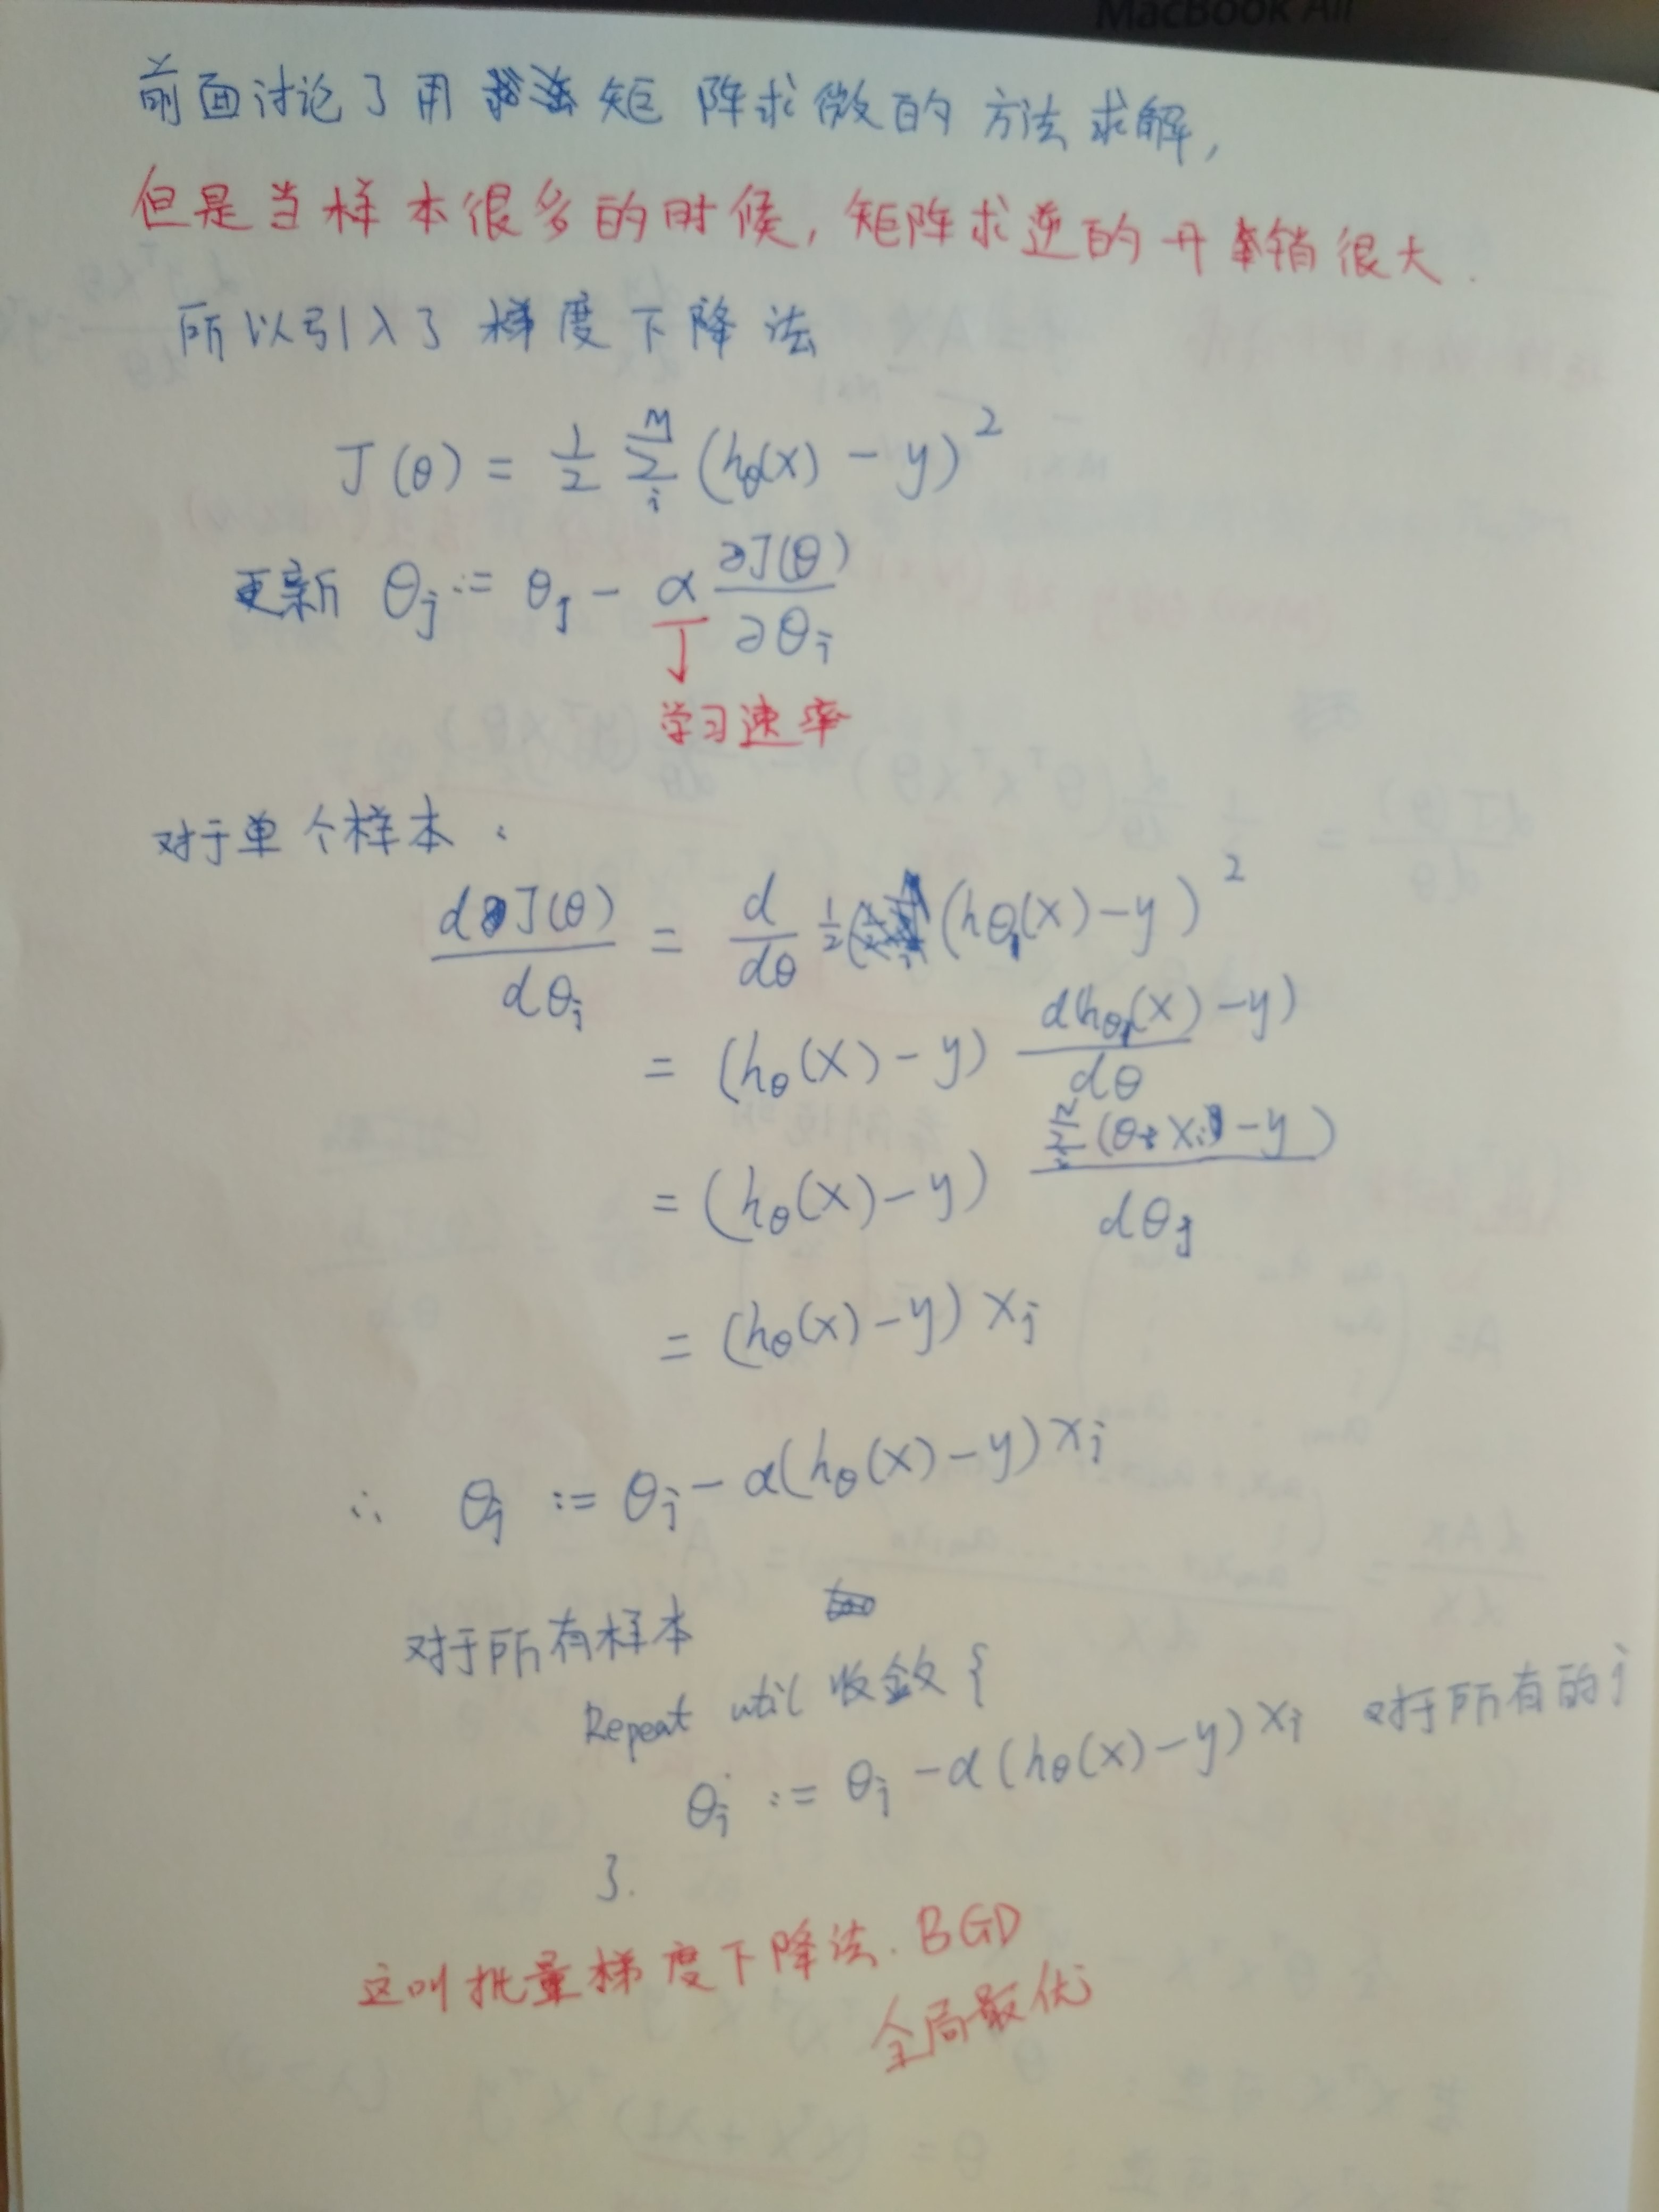 MacBook Air
前面讨论了用矩阵求微的方法求解,
但是当样本很多的时候,矩阵求逆的开销很大.
所以引入了梯度下降法
J(θ) = 1/2 Σ_i^M (hθ(x) - y)^2
更新 θj := θj - α ∂J(θ)/∂θj
学习速率
对于单个样本:
dJ(θ)/dθj = d/dθ 1/2 (hθ(x) - y)^2
= (hθ(x) - y) d(hθ(x) - y)/dθ
= (hθ(x) - y) (θi xi - y)/dθj
= (hθ(x) - y) xj
∴ θj := θj - α(hθ(x) - y) xj
对于所有样本
Repeat util 收敛 {
θj := θj - α(hθ(x) - y) xj 对于所有的 j
}.
这叫批量梯度下降法. BGD
全局最优